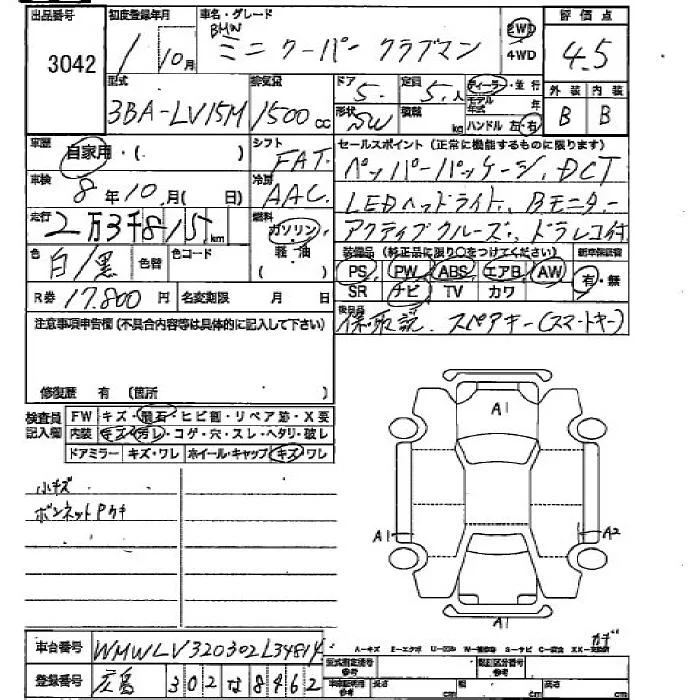 出品番号 初度登録年月 車名・グレード 評価点
3042 1/10月 BMW ミニ クーパー クラブマン 2WD 4WD 4.5
型式 排気量 ドア 定員 ディーラー・並行 外装 内装
3BA-LV15M 1500cc 5. 5.人 モデル年式 年 B B
形状 SW 積載 kg ハンドル 左・右
車歴 自家用・( ) シフト FAT セールスポイント(正常に機能するものに限ります)
ペッパーパッケージ、DCT
車検 8年10月( 日) 冷房 AAC LEDヘッドライト、Bモニター
走行 2万3千815km 燃料 ガソリン・軽油( ) アクティブクルーズ、ドラレコ付
色 白/黒 色替 色コード 装備品(純正品に限り○をつけてください) 新車保証書
PS PW ABS エアB AW 有・無
R券 17.800円 名変期限 月 日 SR ナビ TV カワ
注意事項申告欄(不具合内容等は具体的に記入して下さい) 後日品
保・取説、スペアキー(スマートキー)
修復歴 有 (箇所 )
検査員記入欄 FW キズ・飛石・ヒビ割・リペア跡・X要
内装 キズ・汚レ・コゲ・穴・スレ・ヘタリ・破レ
ドアミラー キズ・ワレ ホイール・キャップ キズ・ワレ
小キズ
ボンネットPウキ
A1
A1 A2
A1
車台番号 WMWLV320302L34814
A-キズ E-エクボ
登録番号 広島 302 な 8462
型式指定番号 参考 類別区分番号 参考
長さ cm 幅 cm 高さ cm